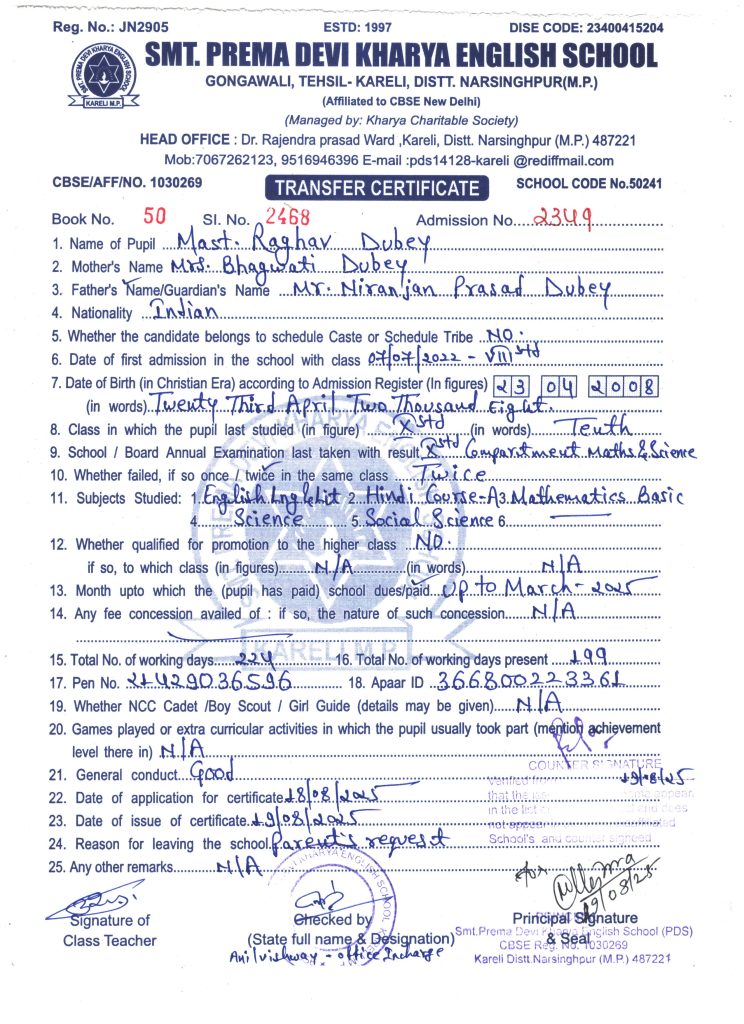 Reg. No.: JN2905 ESTD: 1997 DISE CODE: 23400415204
SMT. PREMA DEVI KHARYA ENGLISH SCHOOL
KARELI M.P.
GONGAWALI, TEHSIL- KARELI, DISTT. NARSINGHPUR(M.P.)
(Affiliated to CBSE New Delhi)
(Managed by: Kharya Charitable Society)
HEAD OFFICE : Dr. Rajendra prasad Ward ,Kareli, Distt. Narsinghpur (M.P.) 487221
Mob:7067262123, 9516946396 E-mail :pds14128-kareli @rediffmail.com
CBSE/AFF/NO. 1030269 TRANSFER CERTIFICATE SCHOOL CODE No.50241
Book No. 50 Sl. No. 2468 Admission No. 2349
1. Name of Pupil Mast. Raghav Dubey
2. Mother's Name Mrs. Bhagwati Dubey
3. Father's Name/Guardian's Name Mr. Niranjan Prasad Dubey
4. Nationality Indian
5. Whether the candidate belongs to schedule Caste or Schedule Tribe NO.
6. Date of first admission in the school with class 07/07/2022 - VIII std
7. Date of Birth (in Christian Era) according to Admission Register (In figures) 23 04 2008
(in words) Twenty Third April Two Thousand Eight.
8. Class in which the pupil last studied (in figure) X std (in words) Tenth
9. School / Board Annual Examination last taken with result X std Compartment Maths & Science
10. Whether failed, if so once / twice in the same class Twice
11. Subjects Studied: 1. English Lng & Lit 2. Hindi Course-A 3. Mathematics Basic
4. Science 5. Social Science 6.
12. Whether qualified for promotion to the higher class NO.
if so, to which class (in figures) N/A (in words) N/A
13. Month upto which the (pupil has paid) school dues/paid. Up to March - 2025
14. Any fee concession availed of : if so, the nature of such concession N/A
KARELI M.P.
15. Total No. of working days 224 16. Total No. of working days present 199
17. Pen No. 21429036596 18. Apaar ID 366800223361
19. Whether NCC Cadet /Boy Scout / Girl Guide (details may be given) N/A
20. Games played or extra curricular activities in which the pupil usually took part (mention achievement
level there in) N/A
COUNTER SIGNATURE
21. General conduct Good 19/08/25
22. Date of application for certificate 18/08/2025
23. Date of issue of certificate 19/08/2025
School's and counter signed
24. Reason for leaving the school Parent's request
25. Any other remarks N/A
for
19/08/25
Signature of Checked by Principal Signature
Class Teacher (State full name & Designation) & Seal
Anil vishway - office Incharge
Smt.Prema Devi Kharya English School (PDS)
CBSE Reg. No. 1030269
Kareli Distt.Narsinghpur (M.P.) 487221